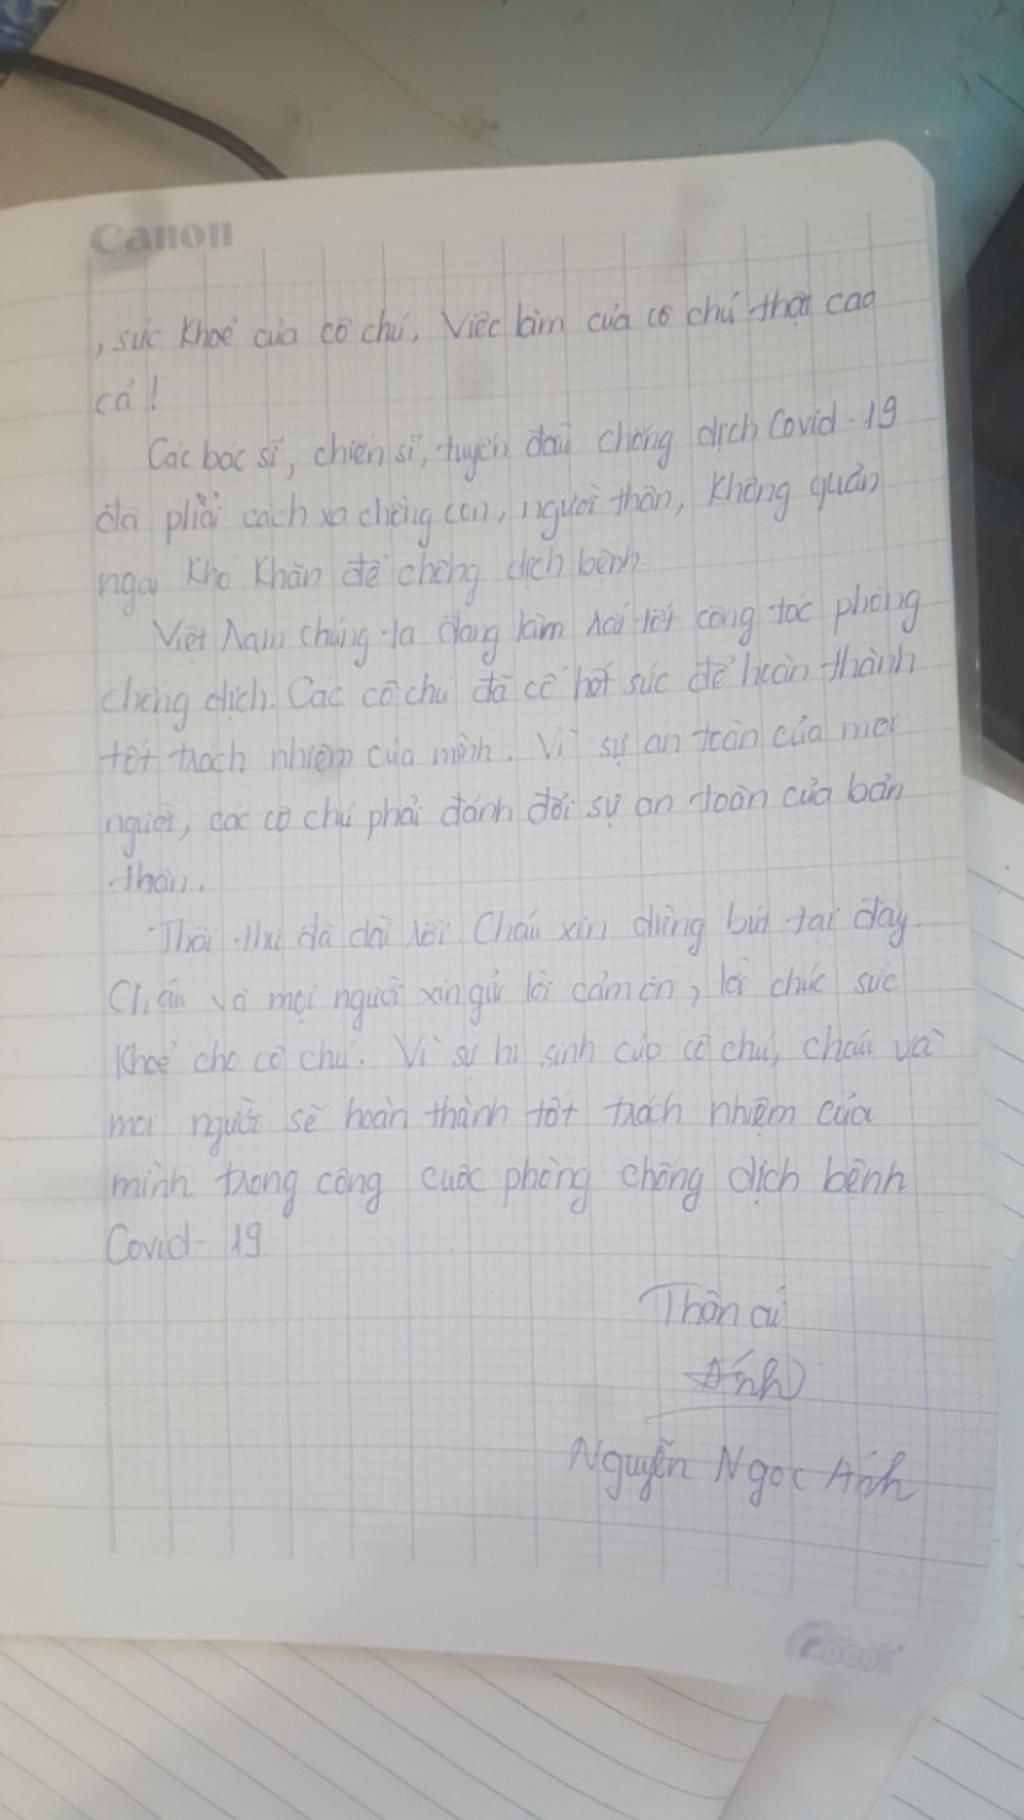 Canon
, sức khoẻ của cô chú. Việc làm của cô chú thật cao
cả!
Các bác sĩ, chiến sĩ, tuyến đầu chống dịch Covid-19
đã phải cách xa chồng con, người thân, không quản
ngại khó khăn để chống dịch bệnh.
Việt Nam chúng ta đang làm rất tốt công tác phòng
chống dịch. Các cô chú đã cố hết sức để hoàn thành
tốt trách nhiệm của mình. Vì sự an toàn của mọi
người, các cô chú phải đánh đổi sự an toàn của bản
thân.
Thôi thư đã dài rồi. Cháu xin dừng bút tại đây.
Cháu và mọi người xin gửi lời cảm ơn, lời chúc sức
khoẻ cho cô chú. Vì sự hi sinh của cô chú, cháu và
mọi người sẽ hoàn thành tốt trách nhiệm của
mình trong công cuộc phòng chống dịch bệnh
Covid-19
Thân ái
Ánh
Nguyễn Ngọc Ánh
book